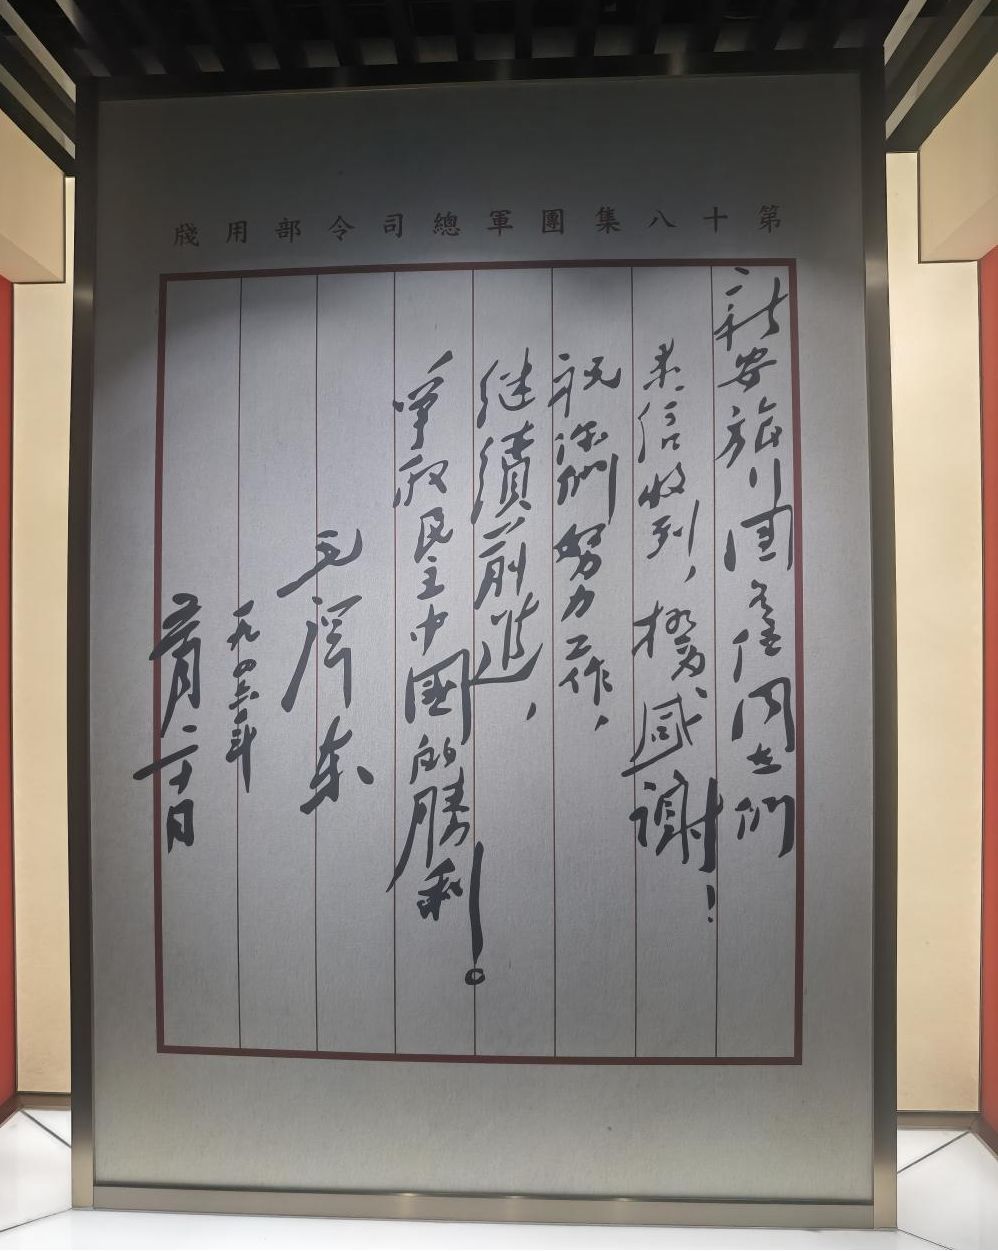 第十八集團軍總司令部用牋
新安旅行团全体同志們
来信收到，極为感謝！
祝你們努力工作，
继續前進，
爭取民主中國的勝利。
毛澤东
一九四六年
五月二十日